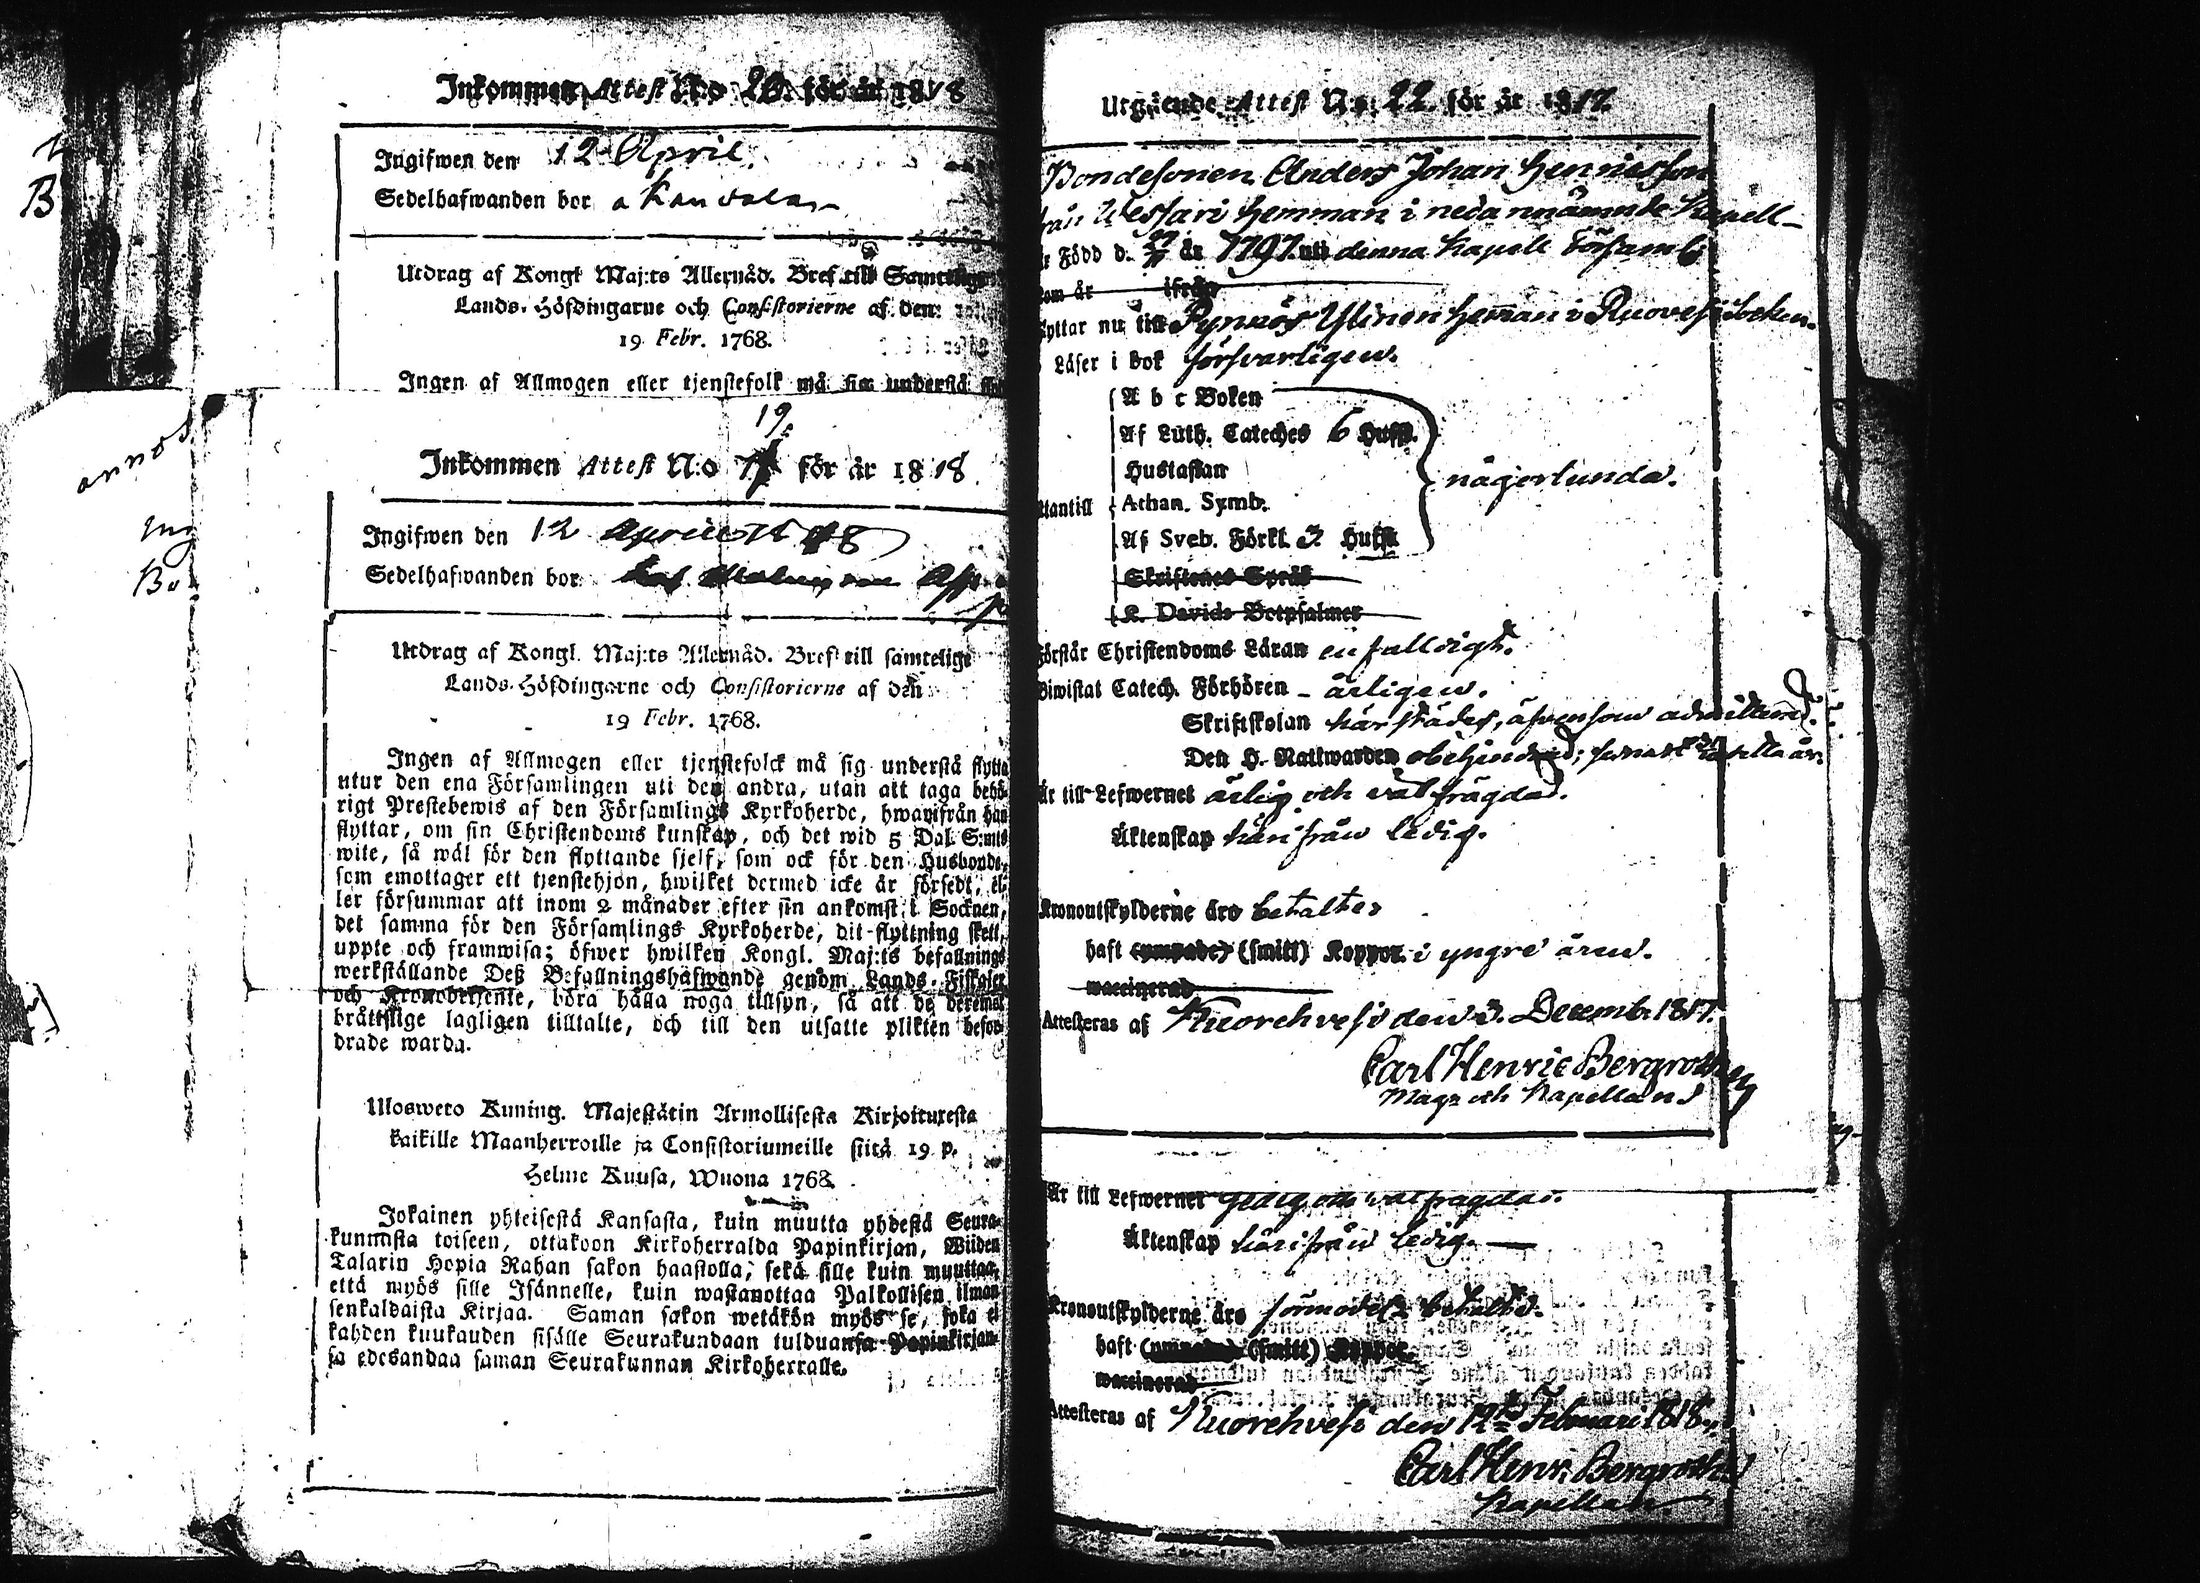 Inkommen Attest No 20. för år 1818
Ingifwen den 12 April.
Sedelhafwanden bor
Utdrag af Kongl Maj:ts Allernåd. Bref till Samtelige
Lands-Höfdingarne och Consistorierne af den
19 Febr. 1768.
Ingen af Allmogen eller tjenstefolk må sig understå
annos
Ing
Bo
19.
Inkommen Attest N:o för år 1818
Ingifwen den 12 April
Sedelhafwanden bor
Utdrag af Kongl. Maj:ts Allernåd. Bref till samtelige
Lands-Höfdingarne och Consistorierne af den
19 Febr. 1768.
Ingen af Allmogen eller tjenstefolck må sig understå flytta
utur den ena Församlingen uti den andra, utan att taga behö-
rigt Prestebewis af den Församlings Kyrkoherde, hwarifrån han
flyttar, om sin Christendoms kunskap, och det wid 5 Dal. S:mts
wite, så wäl för den flyttande sjelf, som ock för den Husbonde,
som emottager ett tjenstehjon, hwilket dermed icke är försedt, el-
ler försummar att inom 2 månader efter sin ankomst i Socknen,
det samma för den Församlings Kyrkoherde, dit flyttning skett,
uppte och framwisa; öfwer hwilken Kongl. Maj:ts befallnings
werkställande Deß Befallningshafwande genom Lands-Fiskaler
och Kronobetjente, böra hålla noga tillsyn, så att de deremot
bråttslige lagligen tilltalte, och till den utsatte plikten befor-
drade warda.
Ulosweto Kuning. Majestätin Armollisesta Kirjoituxesta
kaikille Maanherroille ja Consistoriumeille siitä 19 p.
Helme Kuusa, Wuona 1768.
Jokainen yhteisestä Kansasta, kuin muutta yhdestä Seura-
kunnasta toiseen, ottakoon Kirkoherralda Papinkirjan, Wiiden
Talarin Hopia Rahan sakon haastolla, sekä sille kuin muuttaa,
että myös sille Isännelle, kuin wastanottaa Palkollisen ilman
senkaldaista Kirjaa. Saman sakon wetäkön myös se, joka ei
kahden kuukauden sisälle Seurakundaan tulduansa Papinkirjan-
sa edesandaa saman Seurakunnan Kirkoherralle.
Utgående Attest No 22. för år 1817.
Bondesonen Anders Johan Henricsson
från Wessari hemman i nedannämnde Kapell-
är Född d. år 1797. uti denna Kapell Församl:
som år ifrån
flyttar nu till Ylinen heman i Ruovesi Socken.
Läser i bok försvarligen.
A b c Boken
Af Luth. Cateches 6 Hufst.
Hustaflan
Athan. Symb.
nägorlunda.
utantill
Af Sveb. Förkl. 3. Hufst.
Skriftenes Språk
K. Davids Botpsalmer
Förstår Christendoms Läran enfalldigt.
Biwistat Catech. Förhören - årligen.
Skriftskolan härstädes, äfvensom admitterad.
Den H. Nattwarden obehindrad;
Är till Lefwernet ärlig och väl frägdad.
Äktenskap härifrån ledig.
Kronoutskylderne äro betalte
haft (ympade) (smitt) Koppor i yngre åren.
waccinerad
Attesteras af Kuorehvesi den 3. Decemb. 1817.
Carl Henric Bergroth
Mag: och Kapellan
Är till Lefwernet ärlig och väl frägdad.
Äktenskap härifrån ledig.
Kronoutskylderne äro förmodel: betalte.
haft (ympade) (smitt) Koppor.
waccinerad
Attesteras af Kuorehvesi den 12te Februari 1818.
Carl Henr. Bergroth
Kapellan